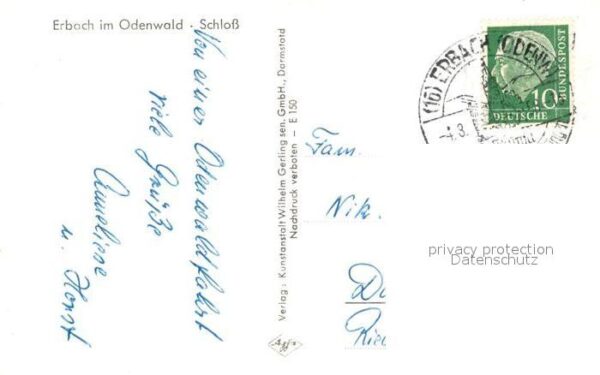 Erbach im Odenwald · Schloß
Von einer Odenwaldfahrt
viele Grüße
Anneliese
u. Horst
Verlag: Kunstanstalt Wilhelm Gerling sen. GmbH., Darmstadt
Nachdruck verboten — E 150
Agfa
Fam.
Nik.
(16) ERBACH (ODENW
-4.8.
10
DEUTSCHE
BUNDESPOST
privacy protection
Datenschutz